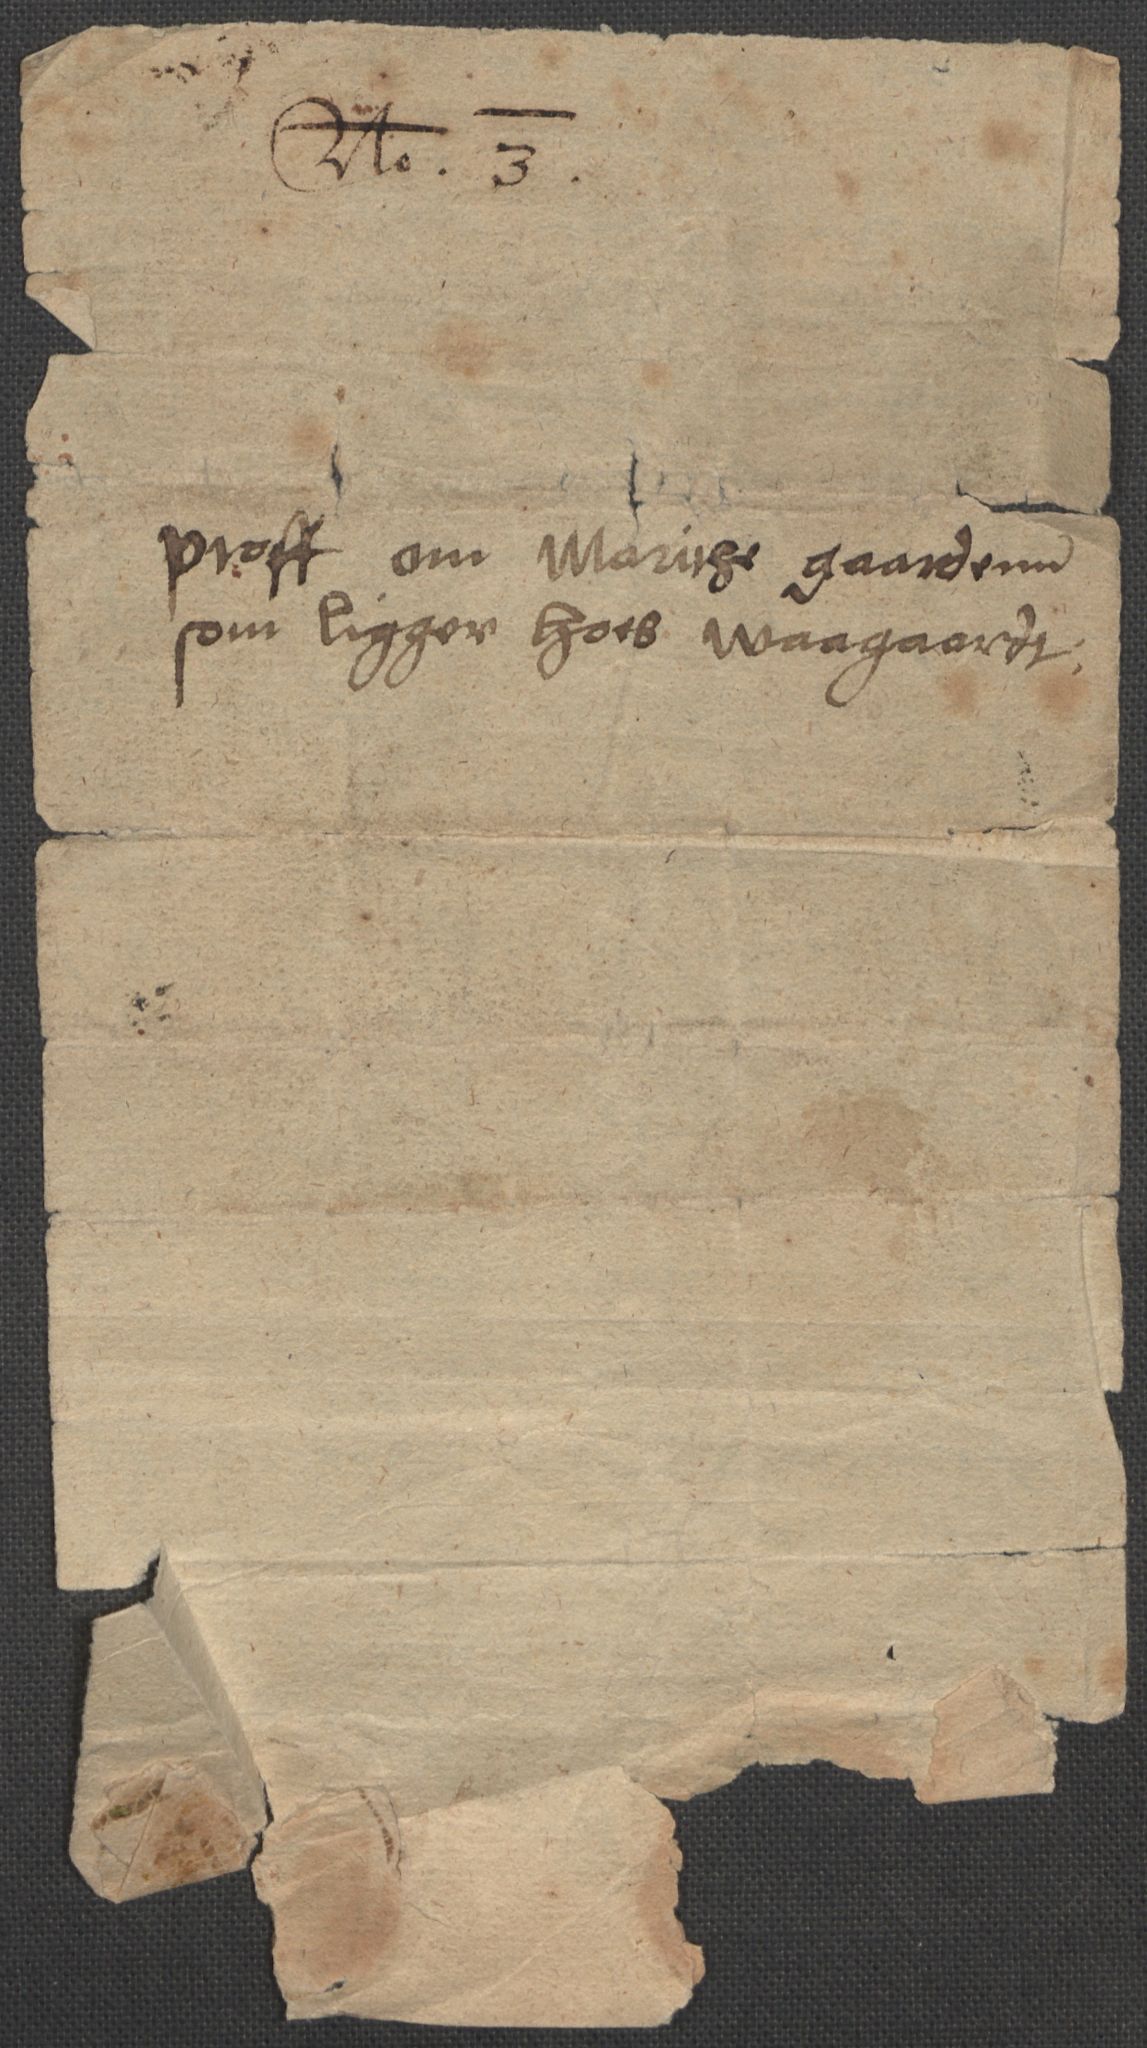 No. 3.
om Marithe gaardenn
som ligger hoes Waagaardt.